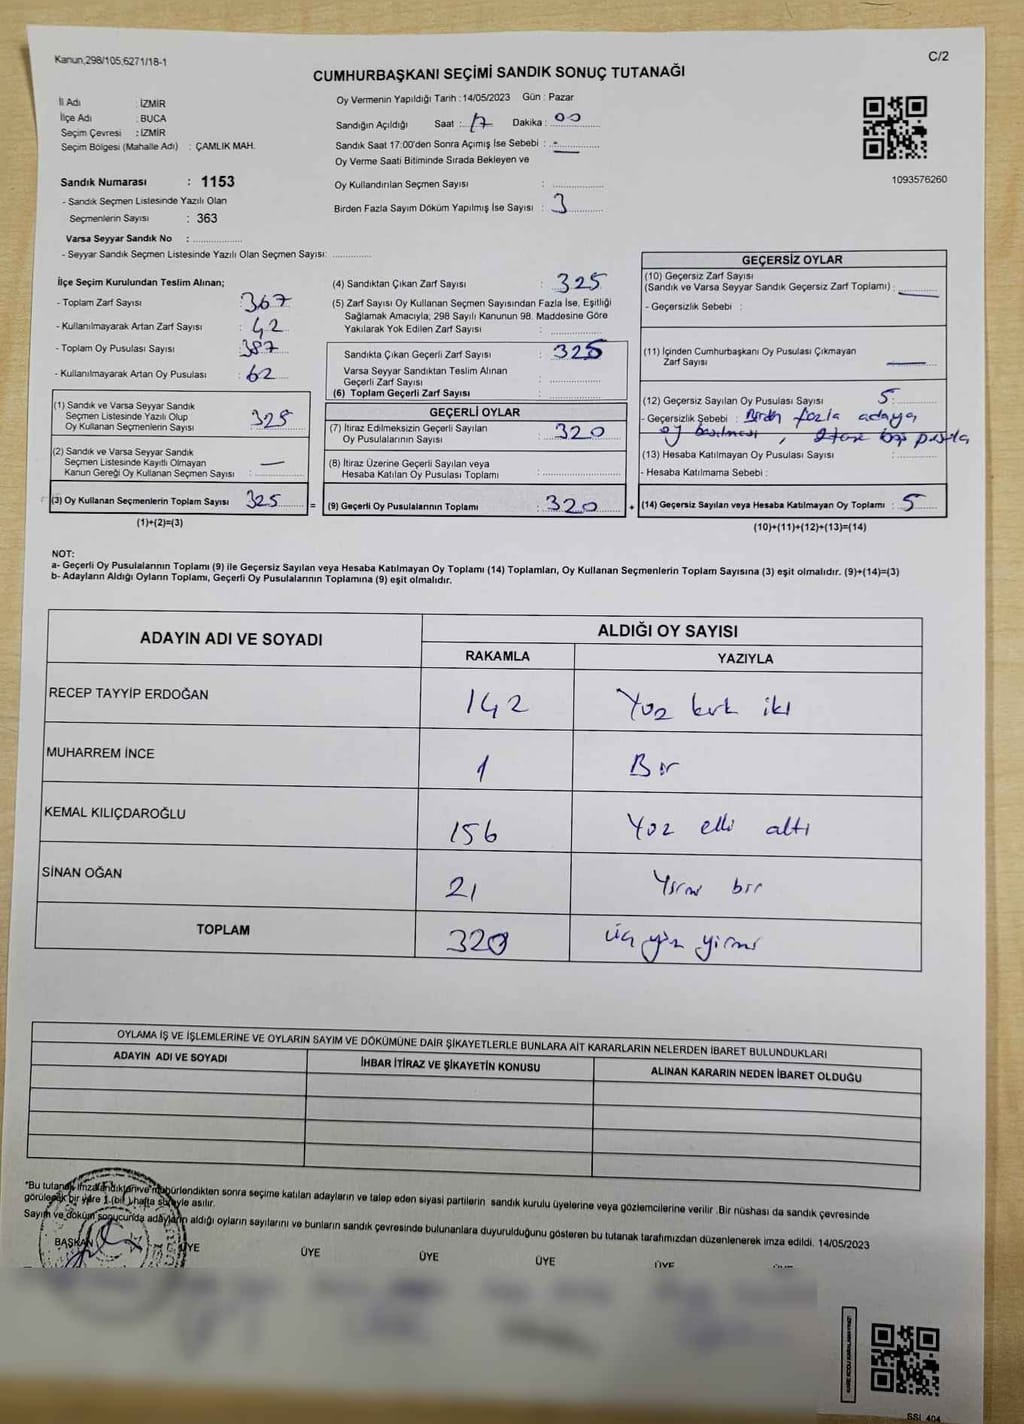 Kanun,298/105,6271/18-1
C/2
CUMHURBAŞKANI SEÇİMİ SANDIK SONUÇ TUTANAĞI
İl Adı : İZMİR
İlçe Adı : BUCA
Seçim Çevresi : İZMİR
Seçim Bölgesi (Mahalle Adı) : ÇAMLIK MAH.
Sandık Numarası : 1153
- Sandık Seçmen Listesinde Yazılı Olan
Seçmenlerin Sayısı : 363
Varsa Seyyar Sandık No :
- Seyyar Sandık Seçmen Listesinde Yazılı Olan Seçmen Sayısı:
Oy Vermenin Yapıldığı Tarih : 14/05/2023 Gün : Pazar
Sandığın Açıldığı Saat : 17 Dakika : 00
Sandık Saat 17:00'den Sonra Açımış İse Sebebi : -
Oy Verme Saati Bitiminde Sırada Bekleyen ve
Oy Kullandırılan Seçmen Sayısı :
Birden Fazla Sayım Döküm Yapılmış İse Sayısı : 3
1093576260
İlçe Seçim Kurulundan Teslim Alınan;
- Toplam Zarf Sayısı : 367
- Kullanılmayarak Artan Zarf Sayısı : 42
- Toplam Oy Pusulası Sayısı : 387
- Kullanılmayarak Artan Oy Pusulası : 62
(1) Sandık ve Varsa Seyyar Sandık
Seçmen Listesinde Yazılı Olup
Oy Kullanan Seçmenlerin Sayısı 325
(2) Sandık ve Varsa Seyyar Sandık
Seçmen Listesinde Kayıtlı Olmayan
Kanun Gereği Oy Kullanan Seçmen Sayısı : —
(3) Oy Kullanan Seçmenlerin Toplam Sayısı 325 =
(1)+(2)=(3)
(4) Sandıktan Çıkan Zarf Sayısı : 325
(5) Zarf Sayısı Oy Kullanan Seçmen Sayısından Fazla İse, Eşitliği
Sağlamak Amacıyla; 298 Sayılı Kanunun 98. Maddesine Göre
Yakılarak Yok Edilen Zarf Sayısı :
Sandıkta Çıkan Geçerli Zarf Sayısı : 325
Varsa Seyyar Sandıktan Teslim Alınan
Geçerli Zarf Sayısı :
(6) Toplam Geçerli Zarf Sayısı :
GEÇERLİ OYLAR
(7) İtiraz Edilmeksizin Geçerli Sayılan
Oy Pusulalarının Sayısı : 320
(8) İtiraz Üzerine Geçerli Sayılan veya
Hesaba Katılan Oy Pusulası Toplamı :
(9) Geçerli Oy Pusulalarının Toplamı : 320 +
GEÇERSİZ OYLAR
(10) Geçersiz Zarf Sayısı
(Sandık ve Varsa Seyyar Sandık Geçersiz Zarf Toplamı) : —
- Geçersizlik Sebebi :
(11) İçinden Cumhurbaşkanı Oy Pusulası Çıkmayan
Zarf Sayısı —
(12) Geçersiz Sayılan Oy Pusulası Sayısı : 5
- Geçersizlik Sebebi : Birden fazla adaya
oy basılması ,
(13) Hesaba Katılmayan Oy Pusulası Sayısı :
- Hesaba Katılmama Sebebi :
(14) Geçersiz Sayılan veya Hesaba Katılmayan Oy Toplamı : 5
(10)+(11)+(12)+(13)=(14)
NOT:
a- Geçerli Oy Pusulalarının Toplamı (9) ile Geçersiz Sayılan veya Hesaba Katılmayan Oy Toplamı (14) Toplamları, Oy Kullanan Seçmenlerin Toplam Sayısına (3) eşit olmalıdır. (9)+(14)=(3)
b- Adayların Aldığı Oyların Toplamı, Geçerli Oy Pusulalarının Toplamına (9) eşit olmalıdır.
ADAYIN ADI VE SOYADI
ALDIĞI OY SAYISI
RAKAMLA YAZIYLA
RECEP TAYYİP ERDOĞAN 142 Yüz kırk iki
MUHARREM İNCE 1 Bir
KEMAL KILIÇDAROĞLU 156 Yüz elli altı
SİNAN OĞAN 21 Yirmi bir
TOPLAM 320 üç yüz yirmi
OYLAMA İŞ VE İŞLEMLERİNE VE OYLARIN SAYIM VE DÖKÜMÜNE DAİR ŞİKAYETLERLE BUNLARA AİT KARARLARIN NELERDEN İBARET BULUNDUKLARI
ADAYIN ADI VE SOYADI İHBAR İTİRAZ VE ŞİKAYETİN KONUSU ALINAN KARARIN NEDEN İBARET OLDUĞU
"Bu tutanak imzalandıktan ve mühürlendikten sonra seçime katılan adayların ve talep eden siyasi partilerin sandık kurulu üyelerine veya gözlemcilerine verilir .Bir nüshası da sandık çevresinde
görülecek bir yere 1 (bir) hafta süreyle asılır.
Sayım ve döküm sonucunda adayların aldığı oyların sayılarını ve bunların sandık çevresinde bulunanlara duyurulduğunu gösteren bu tutanak tarafımızdan düzenlenerek imza edildi. 14/05/2023
BAŞKAN ÜYE ÜYE ÜYE ÜYE ÜYE
SSI_404